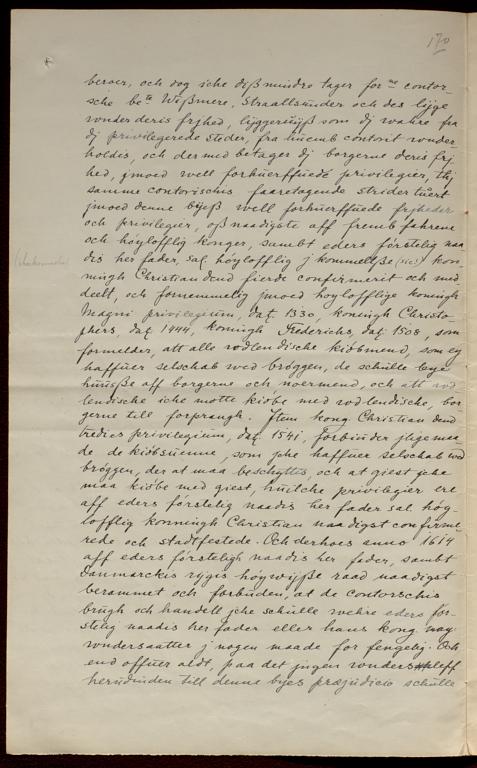 170
beroer, och dog iche dißmindre tager for ne contor-
sche be te Wißmere, Straallsunder och des lijge
vonder deris frjhed, lijggerwijß som dj waare fra
dj privilegerede steder, fra huemb contorit vonder
holdes, och der med betager dj borgerne deris frj
hed, jmoed well forhuerffuede privilegier, thj
samme contorischis faaretagende strider tuert
jmoed denne bijeß well forhuerffuede frjheder
och privilegier, oß naadigste aff fremb fahrene
och høylofflig konger, sambt eders förstelig naa
dis her fader, sal. høylofflig j kommelße (sic!) kon-
ningh Christian dend fierde confirmerit och med
deelt, och fornemmelig jmoed høylofflige koningh
Magni privilegium, dat. 1330, koningh Christo-
phers, dat. 1444, koningh Frederichs, dat. 1508, som
formelder, att alle vodlendische kiöbmend, som ey
haffuer selschab wed brøggen, de schulle leye
huuße aff borgerne och noermend, och att vod
lendische iche motte kiøbe med vodlendische, bor-
gerne till forprangh. Jtem kong Christian dend
tredies privilegium, dat. 1541, forbiuder jlige maa
de de kiöbsuenne, som jche haffuer selschab wed
brøggen, der at maa beschyttis, och at giest jche
maa kiøbe med giest, huilche privilegier ere
aff eders förstelig naadis her fader sal. høg-
lofflig konningh Christian naadigst confirme-
rede och stadtfestede. Och derhoes anno 1614
aff eders försteligh naadis her fader, sambt
Danmarckis rijgis høywijße raad naadigst
berammet och forbuden, at de contorschis
brugh och handell jche schulle wehre eders för-
stelig naadis her fader eller hans kong. may.
vondersaatter j nogen maade for fengelig. Och
end offuer aldt, paa det jngen vonderschleff
herudinden till denne byes præjudicio schulle